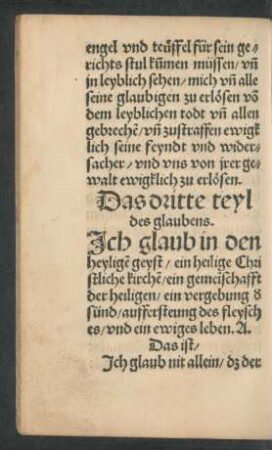 engel vnd teüffel für sein ge⸗
richts stul kũmen müssen/ vñ
jn leyblich sehen/ mich vñ alle
seine glaubigen zu erlösen võ
dem leyblichen todt vñ allen
gebrechẽ/ vñ zustraffen ewigk
lich seine feyndt vnd wider⸗
sacher/ vnd vns von jrer ge⸗
walt ewigklich zu erlösen.
Das dritte teyl
des glaubens.
Ich glaub in den
heyligẽ geyst/ ein heilige Chri
stliche kirchẽ/ ein gemeĩschafft
der heiligen/ ein vergebung d̕
sünd/ auffersteung des fleysch
es/ vnd ein ewiges leben. A.
Das ist/
Ich glaub nit allein/ dz der